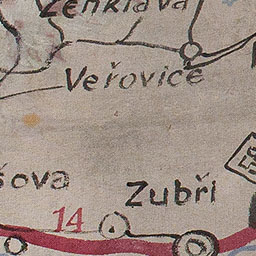 Ženklava
Veřovice
šova
Zubří
14